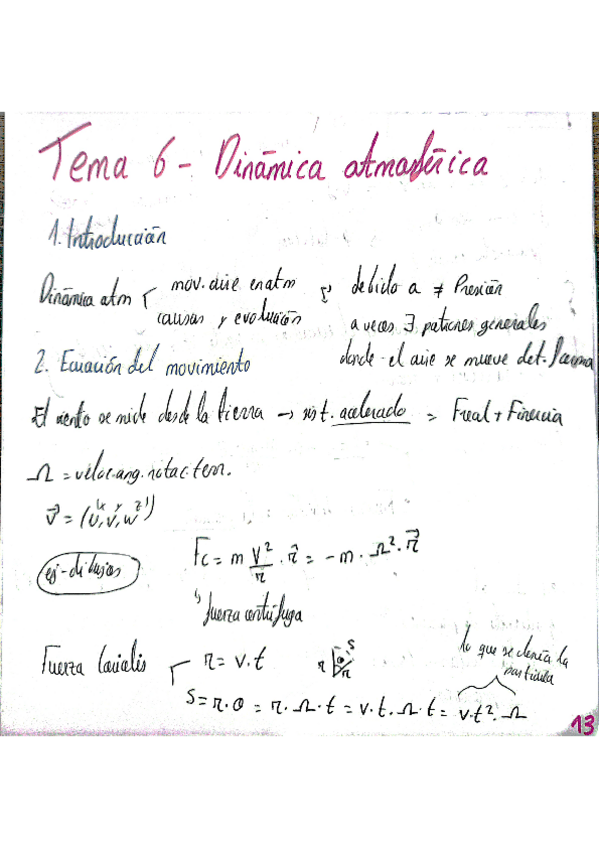 Tema 6 - Dinámica atmosférica
1. Introducción
Dinámica atm mov. aire en atm y debido a ≠ Presión
causas y evolución a veces ∃ patrones generales
donde el aire se mueve det. forma
2. Ecuación del movimiento
El viento se mide desde la tierra → sist. acelerado = Freal + Finercia
Ω = veloc. ang. rotac. terr.
v⃗ = (u, v, w)
x y z
ej - dibujos
Fc = m v²/r · r⃗ = -m · Ω² · r⃗
↳ fuerza centrífuga
Fuerza Coriolis r = v·t
r θ s r
lo que se desvía la partícula
S = r·θ = r·Ω·t = v·t·Ω·t = v·t²·Ω
13